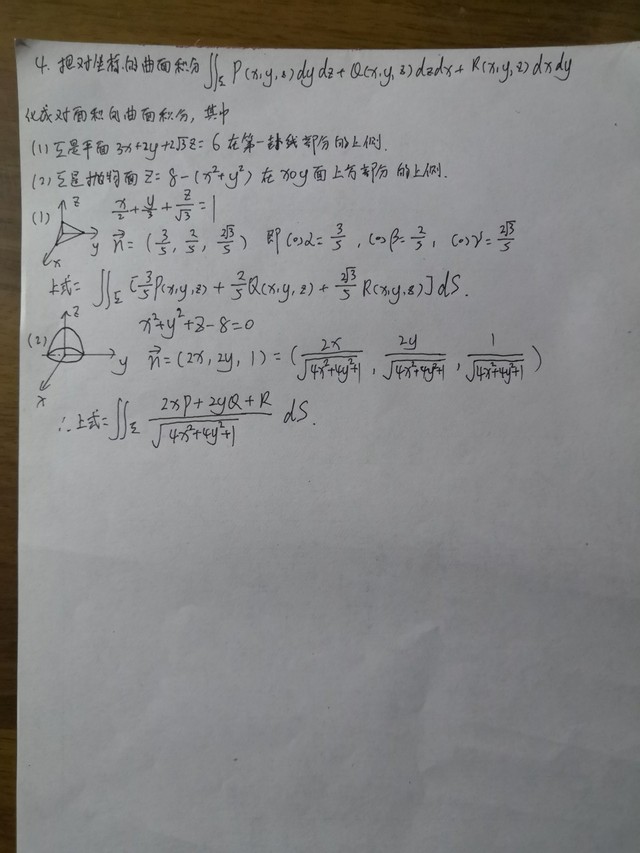 4. 把对坐标的曲面积分∬_Σ P(x,y,z)dydz+Q(x,y,z)dzdx+R(x,y,z)dxdy
化成对面积的曲面积分,其中
(1) Σ是平面3x+2y+2√3z=6在第一卦线部分的上侧.
(2) Σ是抛物面z=8-(x²+y²)在xoy面上方部分的上侧.
(1) z y x x/2+y/3+z/√3=1
n⃗=(3/5, 2/5, 2√3/5) 即cosα=3/5, cosβ=2/5, cosγ=2√3/5
上式=∬_Σ[3/5P(x,y,z)+2/5Q(x,y,z)+2√3/5R(x,y,z)]dS.
(2) z y x x²+y²+z-8=0
n⃗=(2x,2y,1)=(2x/√(4x²+4y²+1), 2y/√(4x²+4y²+1), 1/√(4x²+4y²+1))
∴上式=∬_Σ (2xP+2yQ+R)/√(4x²+4y²+1) dS.